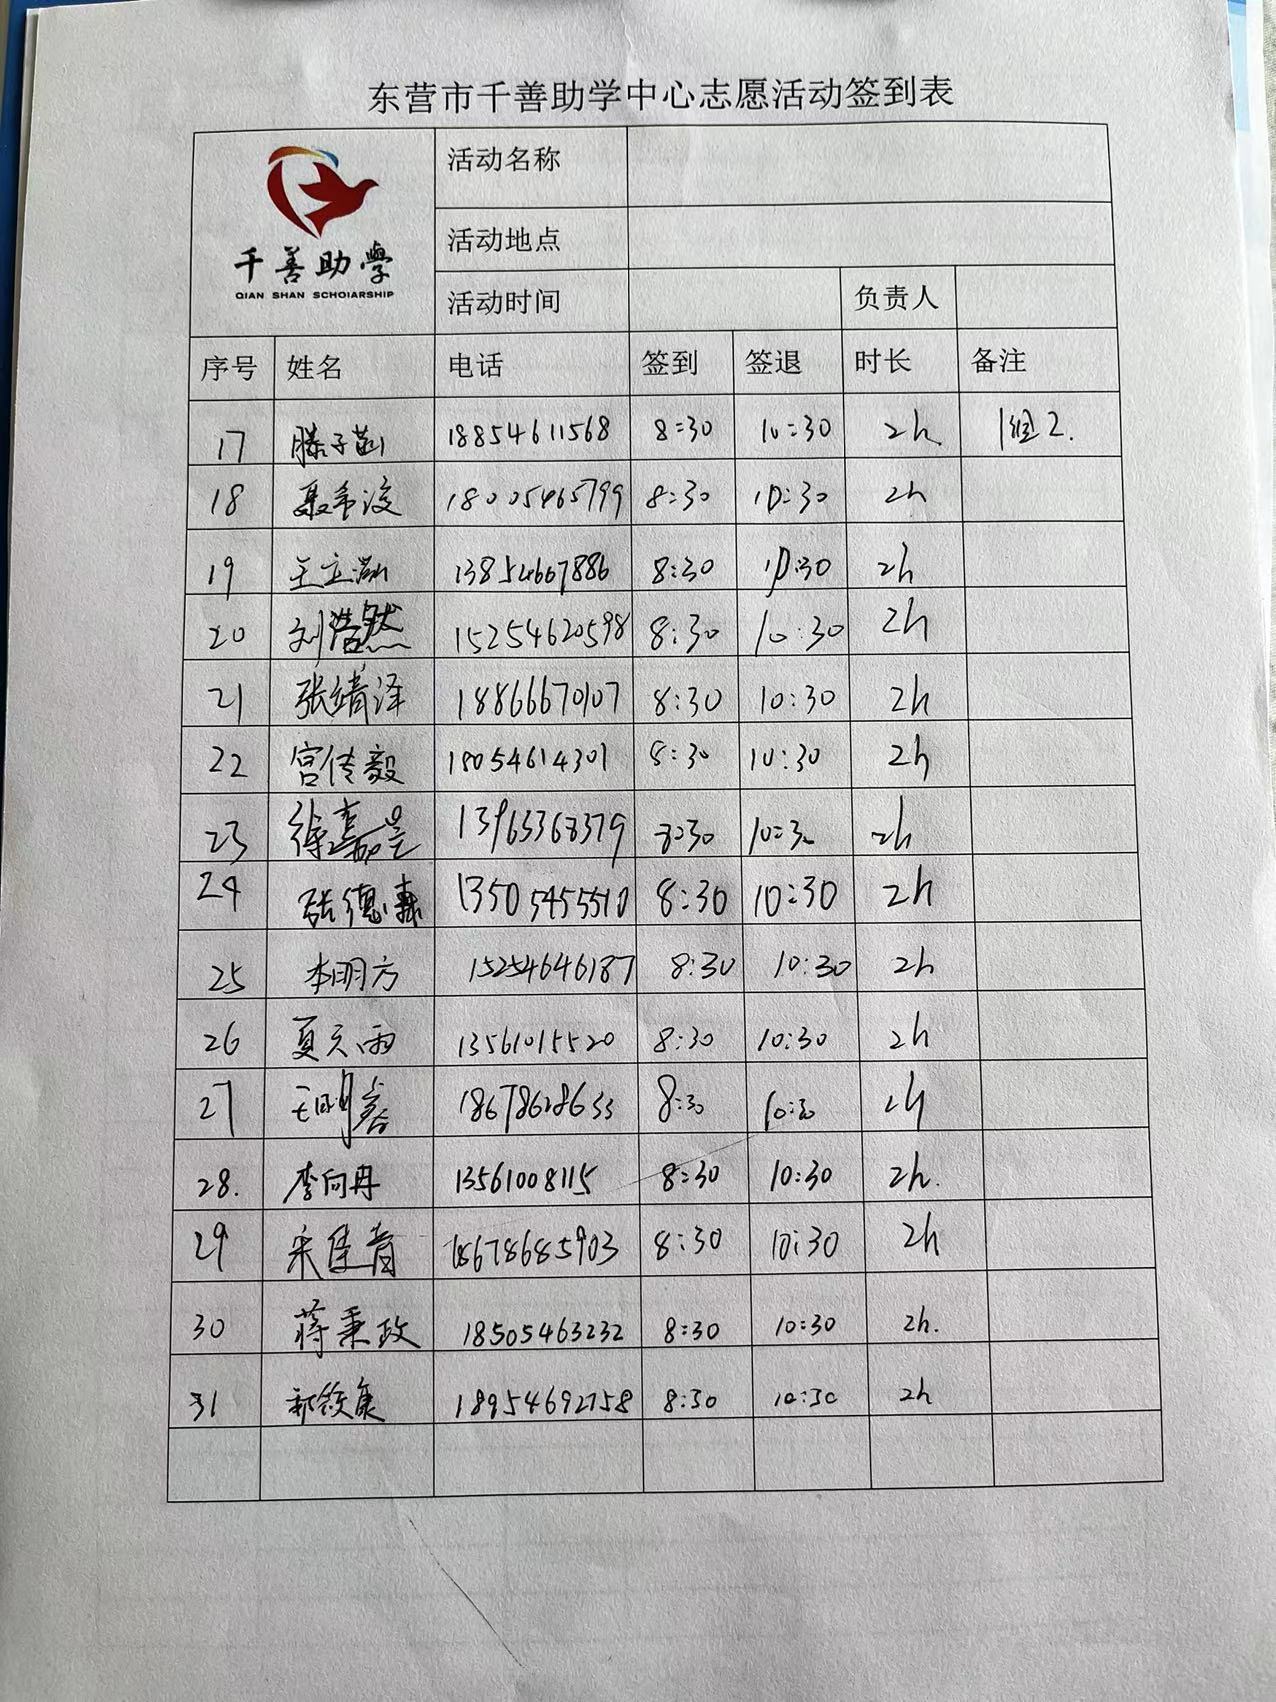 东营市千善助学中心志愿活动签到表
千善助學
QIAN SHAN SCHOIARSHIP
活动名称
活动地点
活动时间 负责人
序号 姓名 电话 签到 签退 时长 备注
17 滕子菡 18854611568 8:30 10:30 2h 1组2.
18 聂希浚 18005465799 8:30 10:30 2h
19 王立 13854667886 8:30 10:30 2h
20 刘浩然 15254620598 8:30 10:30 2h
21 张靖泽 18866670107 8:30 10:30 2h
22 宫传毅 18054614301 8:30 10:30 2h
23 徐嘉昱 13963368379 8:30 10:30 2h
24 张德 13505455510 8:30 10:30 2h
25 李明方 15254646187 8:30 10:30 2h
26 夏天雨 13561015520 8:30 10:30 2h
27 王明睿 18678628633 8:30 10:30 2h
28. 李向冉 13561008115 8:30 10:30 2h.
29 宋佳音 18678685903 8:30 10:30 2h
30 蒋秉政 18505463232 8:30 10:30 2h.
31 康 18954692758 8:30 10:30 2h